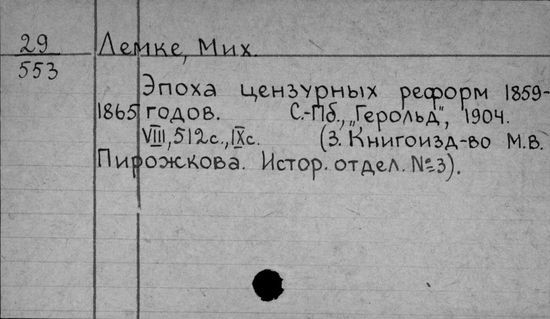 29 Лемке, Мих.
553
Эпоха цензурных реформ 1859-
1865 годов. С.-Пб., „Герольд", 1904.
VIII, 512 с., IX с. (З. Книгоизд-во М.В.
Пирожкова. Истор. отдел. №3).